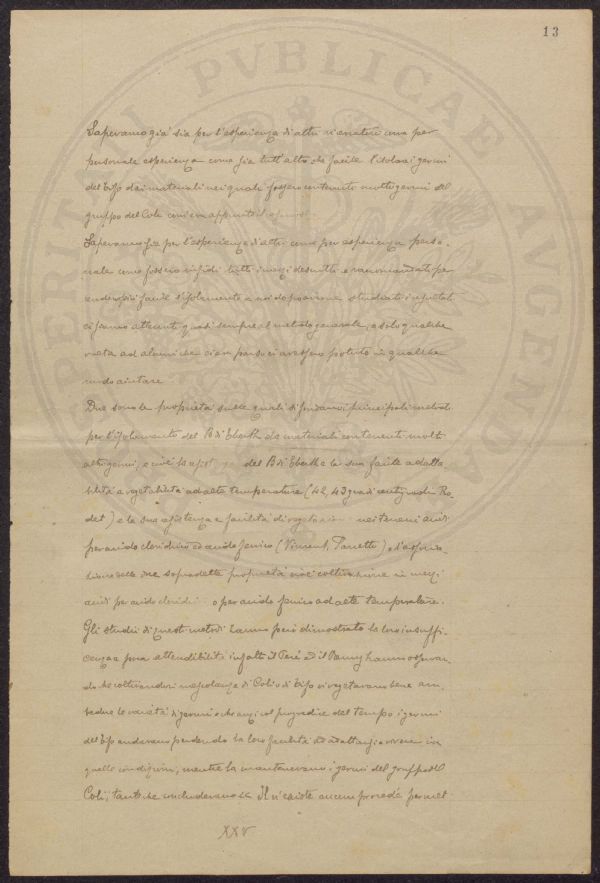 13
Sapevamo già sia per l'esperienza di altri ricercatori come per
personale esperienza come sia tutt'altro che facile l'isolare i germi
del tifo dai materiali nei quali fossero contenuti molti germi del
gruppo del Coli come era appunto il
Sapevamo già per l'esperienza di altri come per esperienza perso-
nale come fossero infidi tutti i mezzi descritti e raccomandati per
facile l'isolamento e noi dopo averne studiati i risultati
ci siamo attenuti quasi sempre al metodo generale, e solo qualche
volta ad alcuni che ci era parso ci avessero potuto in qualche
modo aiutare
Due sono le proprietà sulle quali si fondano i principali metodi
per l'isolamento del B di Eberth da materiali contenenti molti
altri germi, e cioè del B di Eberth e la sua facile adatta
bilità e vegetabilità ad alte temperature (42, 43 gradi centigradi Ro-
det) e la sua resistenza e facilità di vegetazione nei terreni acidi
per acido cloridrico ed acido fenico (Vincent, ) e l'associa-
zione delle due sopradette proprietà cioè coltivazione in mezzi
acidi per acido cloridrico o per acido fenico ad alte temperature.
Gli studii di questi metodi hanno però dimostrato la loro insuffi-
cienza e poca attendibilità infatti il Peré ed il hanno osservan-
do che coltivandovi mescolanze di Coli e di tifo vi vegetavano bene am-
bedue le varietà di germi e che anzi col progredire del tempo i germi
del tifo andavano perdendo la loro facoltà di adattarsi a vivere in
quelle condizioni, mentre la mantenevano i germi del gruppo del
Coli, tanto che concludevano Il n'existe aucun procédé permet
XXV